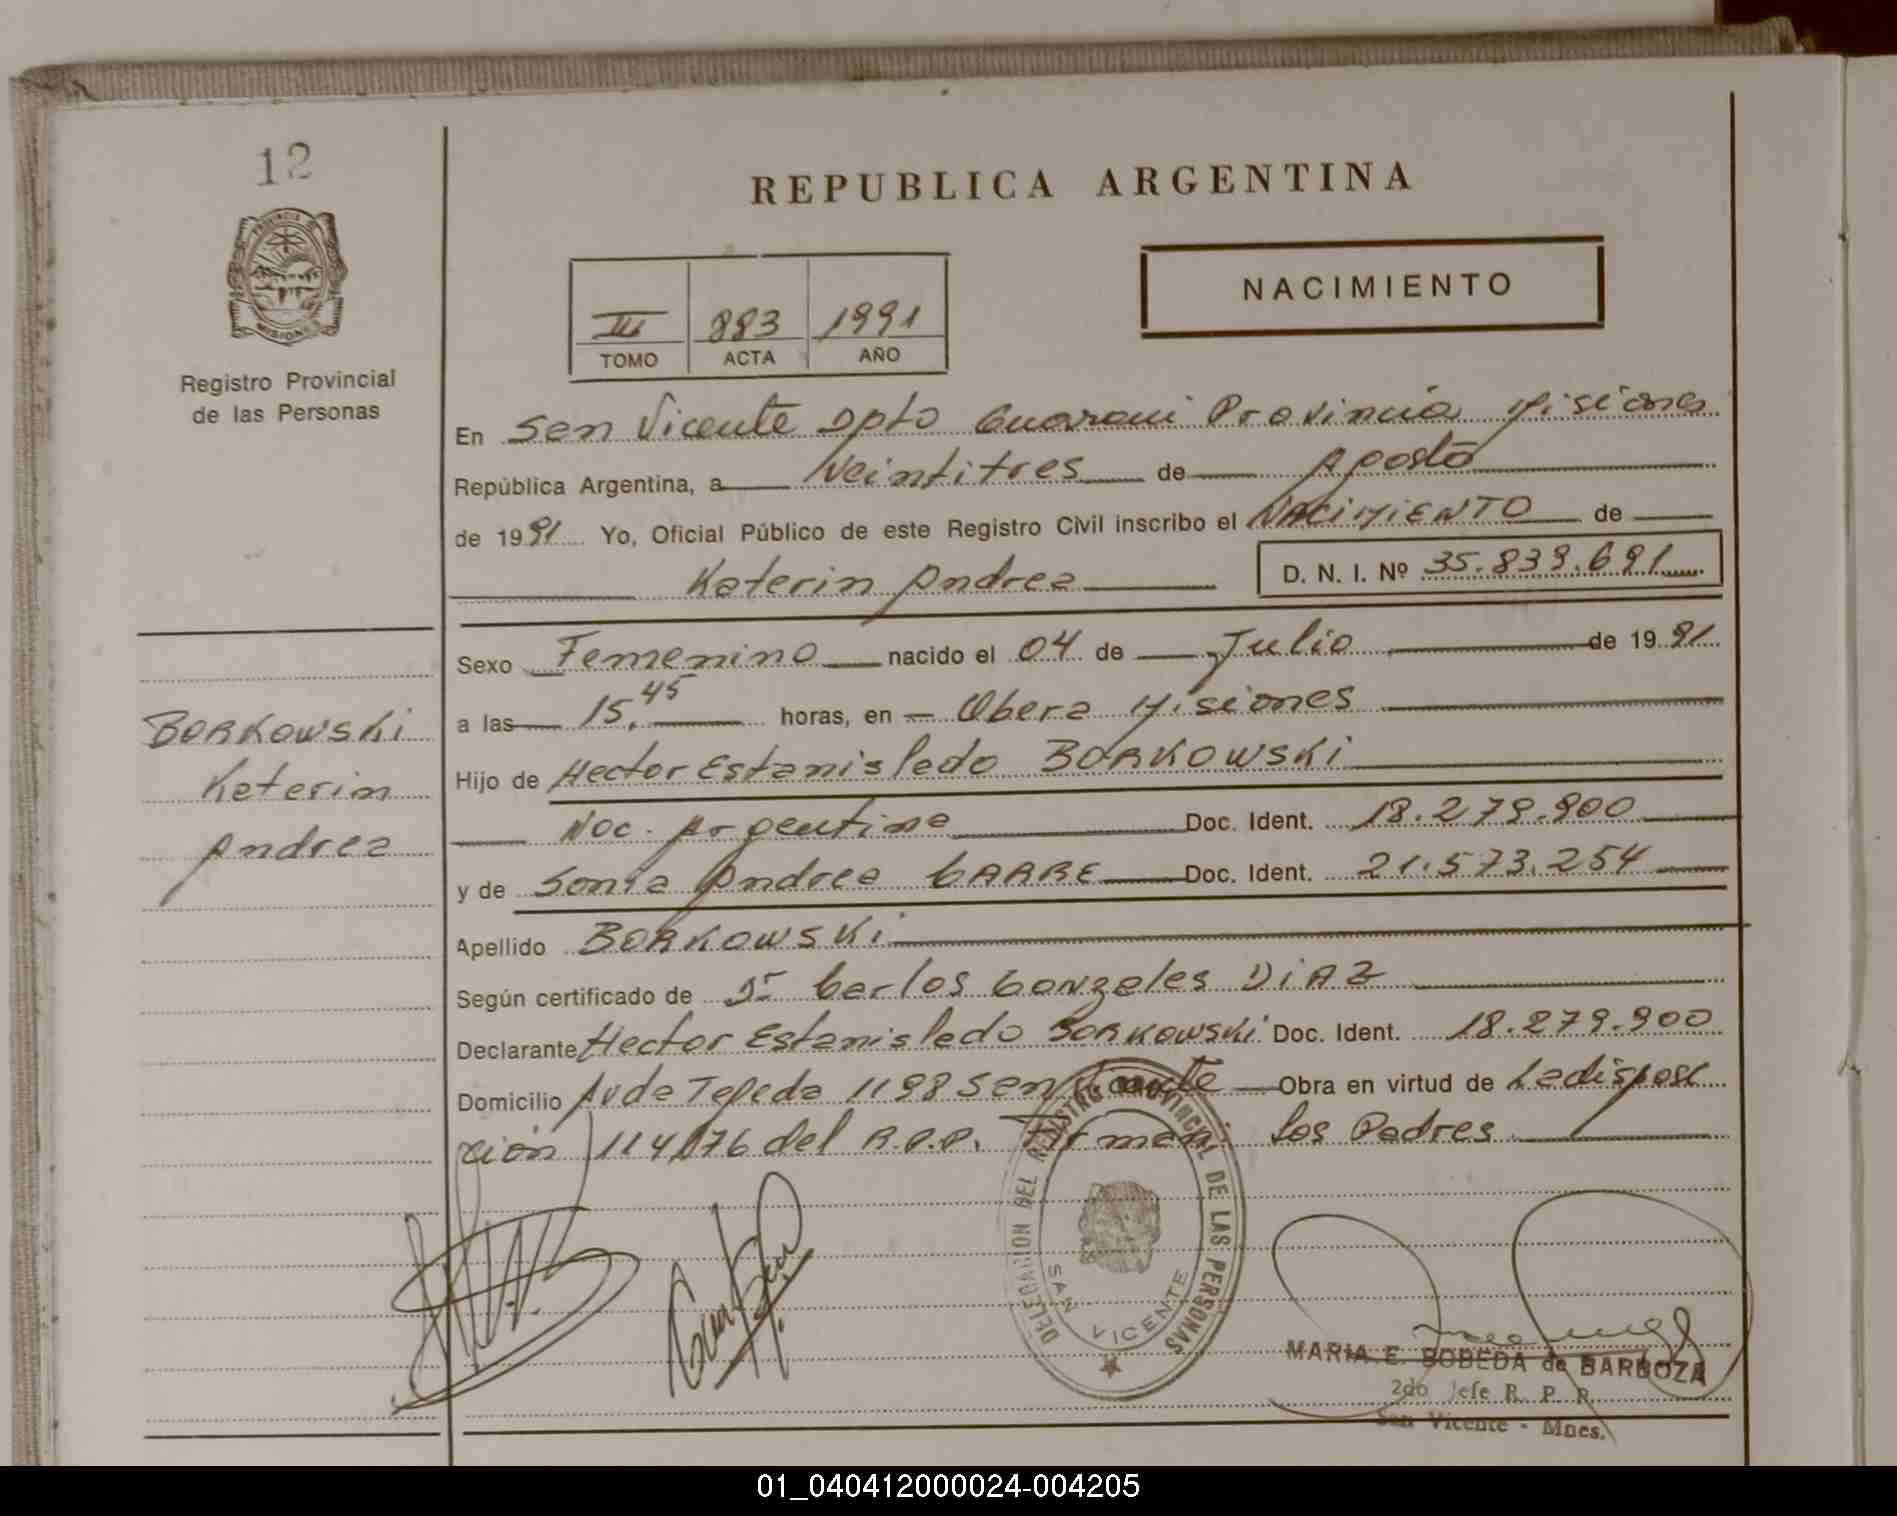 12
REPUBLICA ARGENTINA
NACIMIENTO
III 883 1991
TOMO ACTA AÑO
PROVINCIA
MISIONES
Registro Provincial
de las Personas
En San Vicente Dpto Guarani Provincia Misiones
República Argentina, a Veintitres de Agosto
de 1991 Yo, Oficial Público de este Registro Civil inscribo el NACIMIENTO de
Katerin Andrea D. N. I. Nº 35.839.691
Sexo Femenino nacido el 04 de Julio de 1991
a las 15.45 horas, en Obera Misiones
Hijo de Hector Estanislado BORKOWSKI
Nac. Argentina Doc. Ident. 18.279.900
y de Sonia Andrea CARRE Doc. Ident. 21.573.254
Apellido BORKOWSKI
Según certificado de Dr Carlos Gonzales DIAZ
Declarante Hector Estanislado BORKOWSKI Doc. Ident. 18.279.900
Domicilio Avda Tejeda 1198 San Vicente Obra en virtud de La disposi
ción 114/76 del R.P.P. Firman: los Padres
BORKOWSKI
Katerin
Andrea
DELEGACION DEL REGISTRO PROVINCIAL DE LAS PERSONAS
SAN VICENTE
MARIA E. BOBEDA de BARBOZA
2do Jefe R. P. P.
San Vicente - Mnes.
01_040412000024-004205